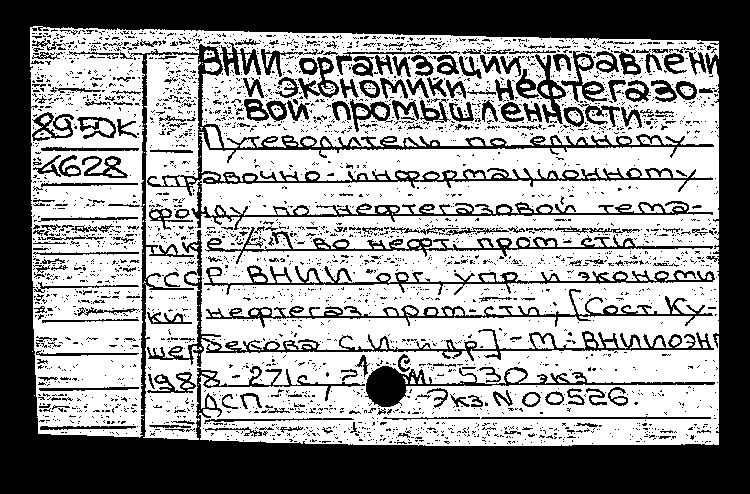 ВНИИ организации, управлени
и экономики нефтегазо-
вой промышленности
89-50к
4628
Путеводитель по единому
справочно-информационному
фонду по нефтегазовой тема-
тике / М-во нефт. пром-сти
СССР, ВНИИ орг., упр. и экономи
ки нефтегаз. пром-сти; [Сост. Ку-
шербекова С.И. и др.] - М.: ВНИИОЭНГ
1988. - 271с.; см. 530 экз
ДСП. Экз. N 00526.